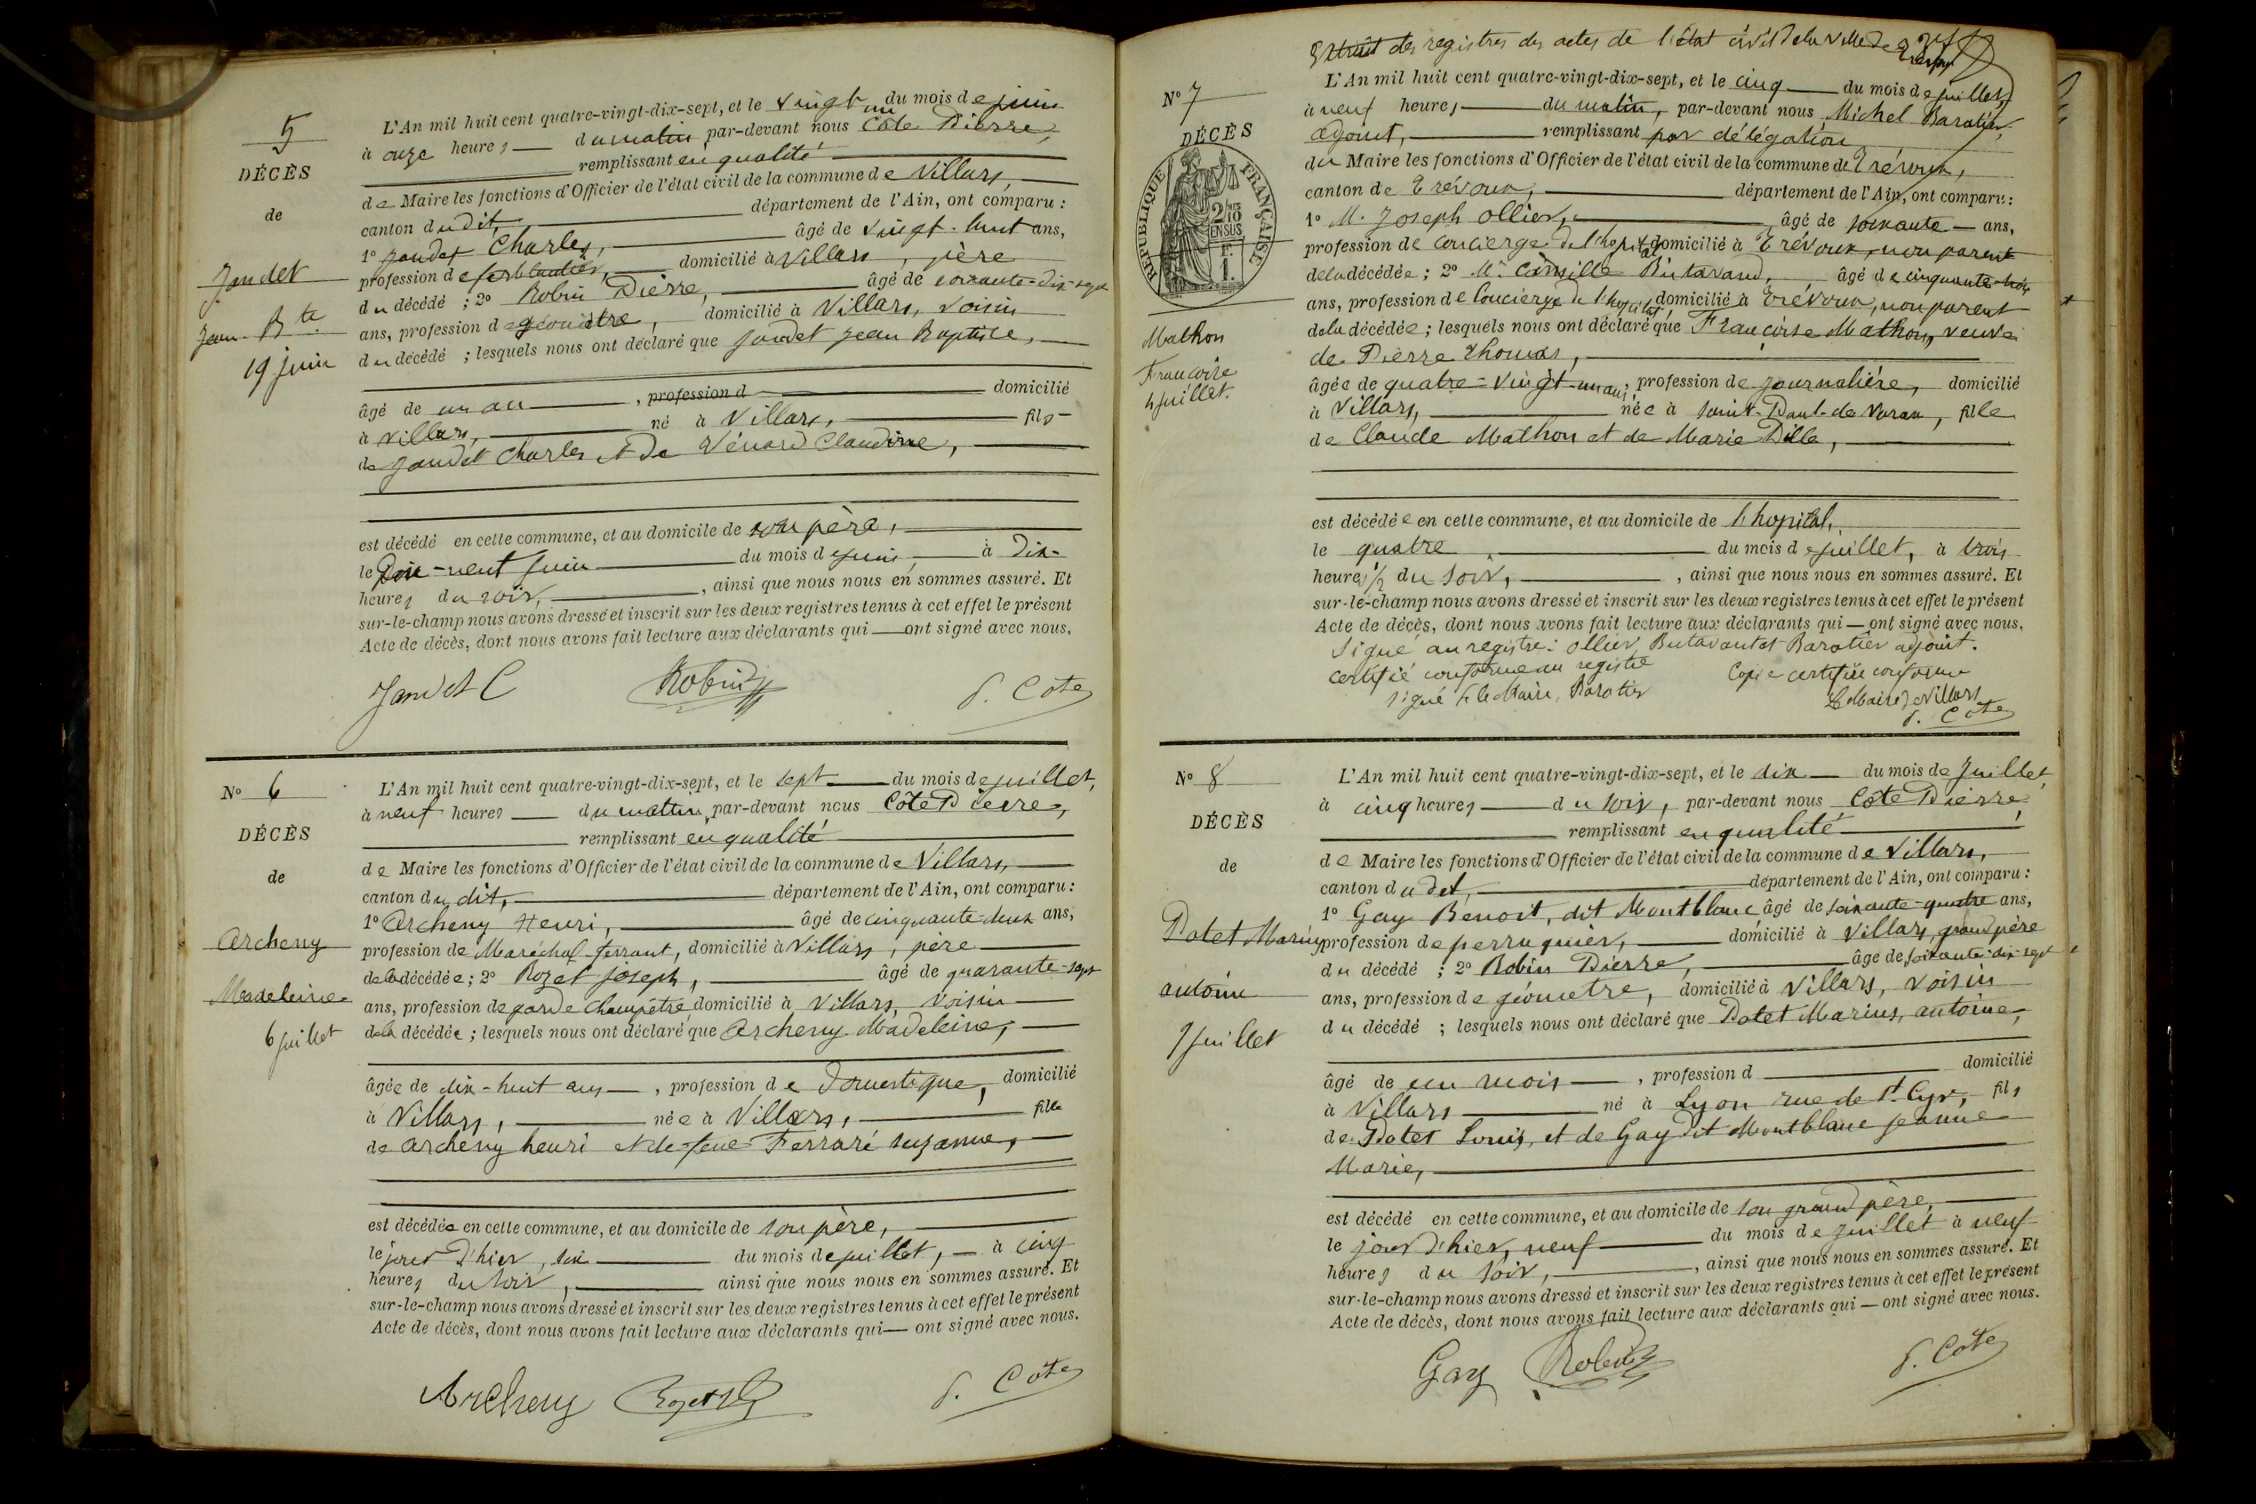 5
DÉCÈS
de
Jandet
Jean-Bte
19 juin
L'An mil huit cent quatre-vingt-dix-sept, et le vingt un du mois de juin
à onze heures du matin par-devant nous Côte Pierre,
remplissant en qualité
de Maire les fonctions d'Officier de l'état civil de la commune de Villars,
canton dudit, département de l'Ain, ont comparu :
1º Jandet Charles, âgé de vingt-huit ans,
profession de ferblantier, domicilié à Villars, père
du décédé ; 2º Robin Pierre, âgé de soixante-dix-sept
ans, profession de géomètre, domicilié à Villars, voisin
du décédé ; lesquels nous ont déclaré que Jandet Jean Baptiste,
âgé de un an, profession d domicilié
à Villars, né à Villars, fils
de Jandet Charles et de Vénard Claudine,
est décédé en cette commune, et au domicile de son père,
le dix-neuf juin du mois de juin, à dix
heures du soir, ainsi que nous nous en sommes assuré. Et
sur-le-champ nous avons dressé et inscrit sur les deux registres tenus à cet effet le présent
Acte de décès, dont nous avons fait lecture aux déclarants qui ont signé avec nous.
Jandet C Robin P. Côte
Nº 6
DÉCÈS
de
Archeny
Madeleine
6 juillet
L'An mil huit cent quatre-vingt-dix-sept, et le sept du mois de juillet,
à neuf heures du matin, par-devant nous Côte Pierre,
remplissant en qualité
de Maire les fonctions d'Officier de l'état civil de la commune de Villars,
canton dudit, département de l'Ain, ont comparu :
1º Archeny Henri, âgé de cinquante-deux ans,
profession de Maréchal-ferrant, domicilié à Villars, père
de la décédée ; 2º Rozet Joseph, âgé de quarante-sept
ans, profession de garde champêtre, domicilié à Villars, voisin
de la décédée ; lesquels nous ont déclaré que Archeny Madeleine,
âgée de dix-huit ans, profession de domestique, domicilié
à Villars, née à Villars, fille
de Archeny henri et de feue Ferrari suzanne,
est décédée en cette commune, et au domicile de son père,
le jour d'hier, six du mois de juillet, à cinq
heures du soir, ainsi que nous nous en sommes assuré. Et
sur-le-champ nous avons dressé et inscrit sur les deux registres tenus à cet effet le présent
Acte de décès, dont nous avons fait lecture aux déclarants qui ont signé avec nous.
Archeny Rozet P. Côte
Extrait des registres des actes de l'état civil de la ville de Trévoux
Nº 7
DÉCÈS
RÉPUBLIQUE FRANÇAISE
2/10 EN SUS
1 F.
Mathon
Françoise
4 juillet.
L'An mil huit cent quatre-vingt-dix-sept, et le cinq du mois de juillet,
à neuf heures du matin, par-devant nous Michel Baratier,
adjoint, remplissant par délégation
du Maire les fonctions d'Officier de l'état civil de la commune de Trévoux,
canton de Trévoux, département de l'Ain, ont comparu :
1º M. Joseph Ollier, âgé de soixante ans,
profession de concierge de l'hopital domicilié à Trévoux, non parent
de la décédée ; 2º Mr Camille Butavand, âgé de cinquante-trois
ans, profession de Concierge de l'hopital, domicilié à Trévoux, non parent
de la décédée ; lesquels nous ont déclaré que Françoise Mathon, veuve
de Pierre Thomas,
âgée de quatre-vingt-un ans, profession de journalière, domicilié
à Villars, née à saint-Paul-de Varax, fille
de Claude Mathon et de Marie Pille,
est décédée en cette commune, et au domicile de l'hopital,
le quatre du mois de juillet, à trois
heures 1/2 du soir, ainsi que nous nous en sommes assuré. Et
sur-le-champ nous avons dressé et inscrit sur les deux registres tenus à cet effet le présent
Acte de décès, dont nous avons fait lecture aux déclarants qui ont signé avec nous.
Signé au registre : Ollier, Butavant et Baratier adjoint.
certifié conforme au registre
signé le Maire, Baratier
Copie certifiée conforme
Le Maire de Villars
P. Côte
Nº 8
DÉCÈS
de
Potet Marius
antoine
9 juillet
L'An mil huit cent quatre-vingt-dix-sept, et le dix du mois de Juillet,
à cinq heures du soir, par-devant nous Côte Pierre,
remplissant en qualité
de Maire les fonctions d'Officier de l'état civil de la commune de Villars,
canton dudit, département de l'Ain, ont comparu :
1º Gay Benoit, dit Montblanc, âgé de soixante-quatre ans,
profession de perruquier, domicilié à Villars, grand père
du décédé ; 2º Robin Pierre, âgé de soixante-dix-sept
ans, profession de géomètre, domicilié à Villars, voisin
du décédé ; lesquels nous ont déclaré que Potet Marius, antoine,
âgé de un mois, profession d domicilié
à Villars né à Lyon rue de St Cyr, fils
de Potet Louis, et de Gay dit Montblanc Jeanne
Marie,
est décédé en cette commune, et au domicile de son grand père,
le jour d'hier, neuf du mois de juillet à neuf
heures du soir, ainsi que nous nous en sommes assuré. Et
sur-le-champ nous avons dressé et inscrit sur les deux registres tenus à cet effet le présent
Acte de décès, dont nous avons fait lecture aux déclarants qui ont signé avec nous.
Gay Robin P. Côte